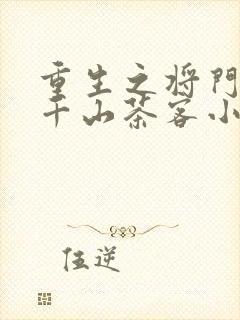 重生之将門
千山茶客小
伍逆